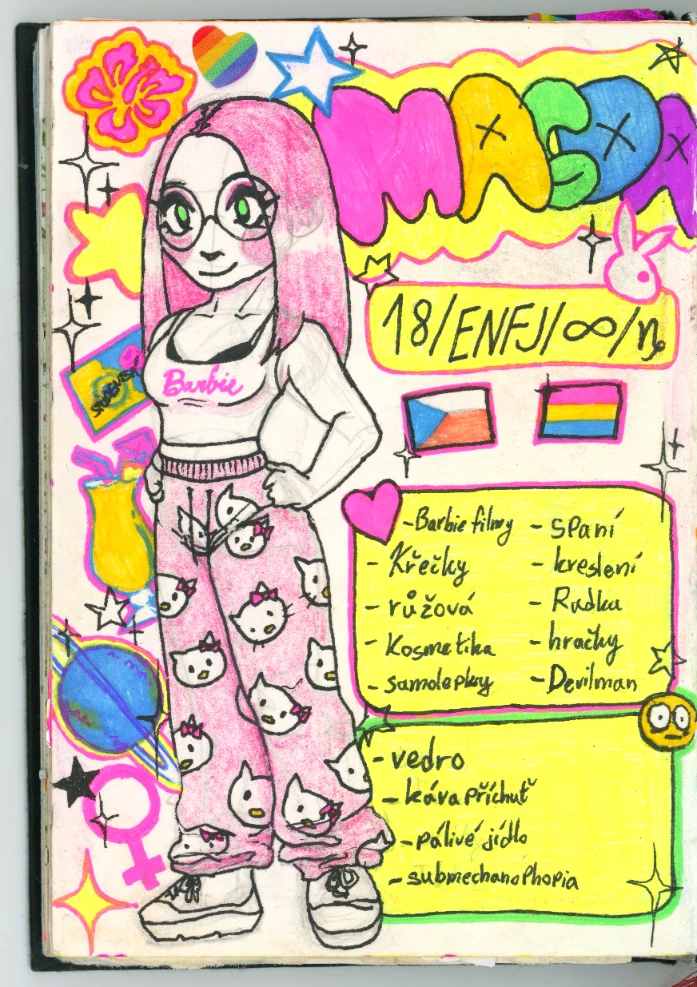 MAGDA
18/ENFJ/∞/♑
Barbie
-Barbie filmy
- Křečky
- růžová
- Kosmetika
- samolepky
- spaní
- kreslení
- hračky
- Devilman
- vedro
- káva příchuť
- pálivé jídlo
- submechanophopia